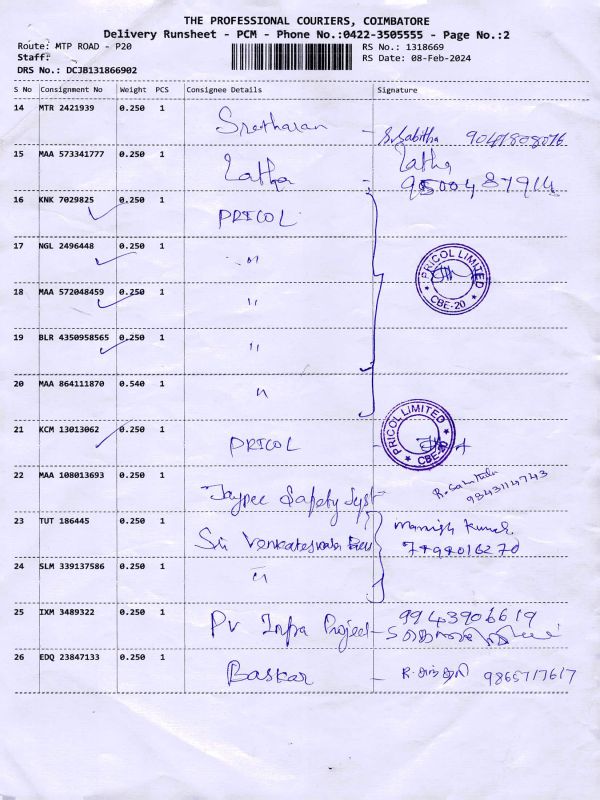 THE PROFESSIONAL COURIERS, COIMBATORE
Delivery Runsheet - PCM - Phone No.:0422-3505555 - Page No.:2
Route: MTP ROAD - P20
RS No.: 1318669
Staff:
RS Date: 08-Feb-2024
DRS No.: DCJB131866902
S No Consignment No Weight PCS Consignee Details Signature
14 MTR 2421939 0.250 1 Sreetharan - S.Sabitha
15 MAA 573341777 0.250 1 Latha - Latha
16 KNK 7029825 0.250 1 PRICOL
17 NGL 2496448 0.250 1 "
PRICOL LIMITED
CBE-20
18 MAA 572048459 0.250 1 "
19 BLR 4350958565 0.250 1 "
20 MAA 864111870 0.540 1 "
21 KCM 13013062 0.250 1 PRICOL
PRICOL LIMITED
CBE-20
22 MAA 108013693 0.250 1 Jaypee Safety Syst
9843114743
23 TUT 186445 0.250 1 Sri Venkateswara Manish Kumar
24 SLM 339137586 0.250 1 "
25 IXM 3489322 0.250 1 Pv Infra Project - 9943906619
26 EDQ 23847133 0.250 1 Baskar - R. 9865717617